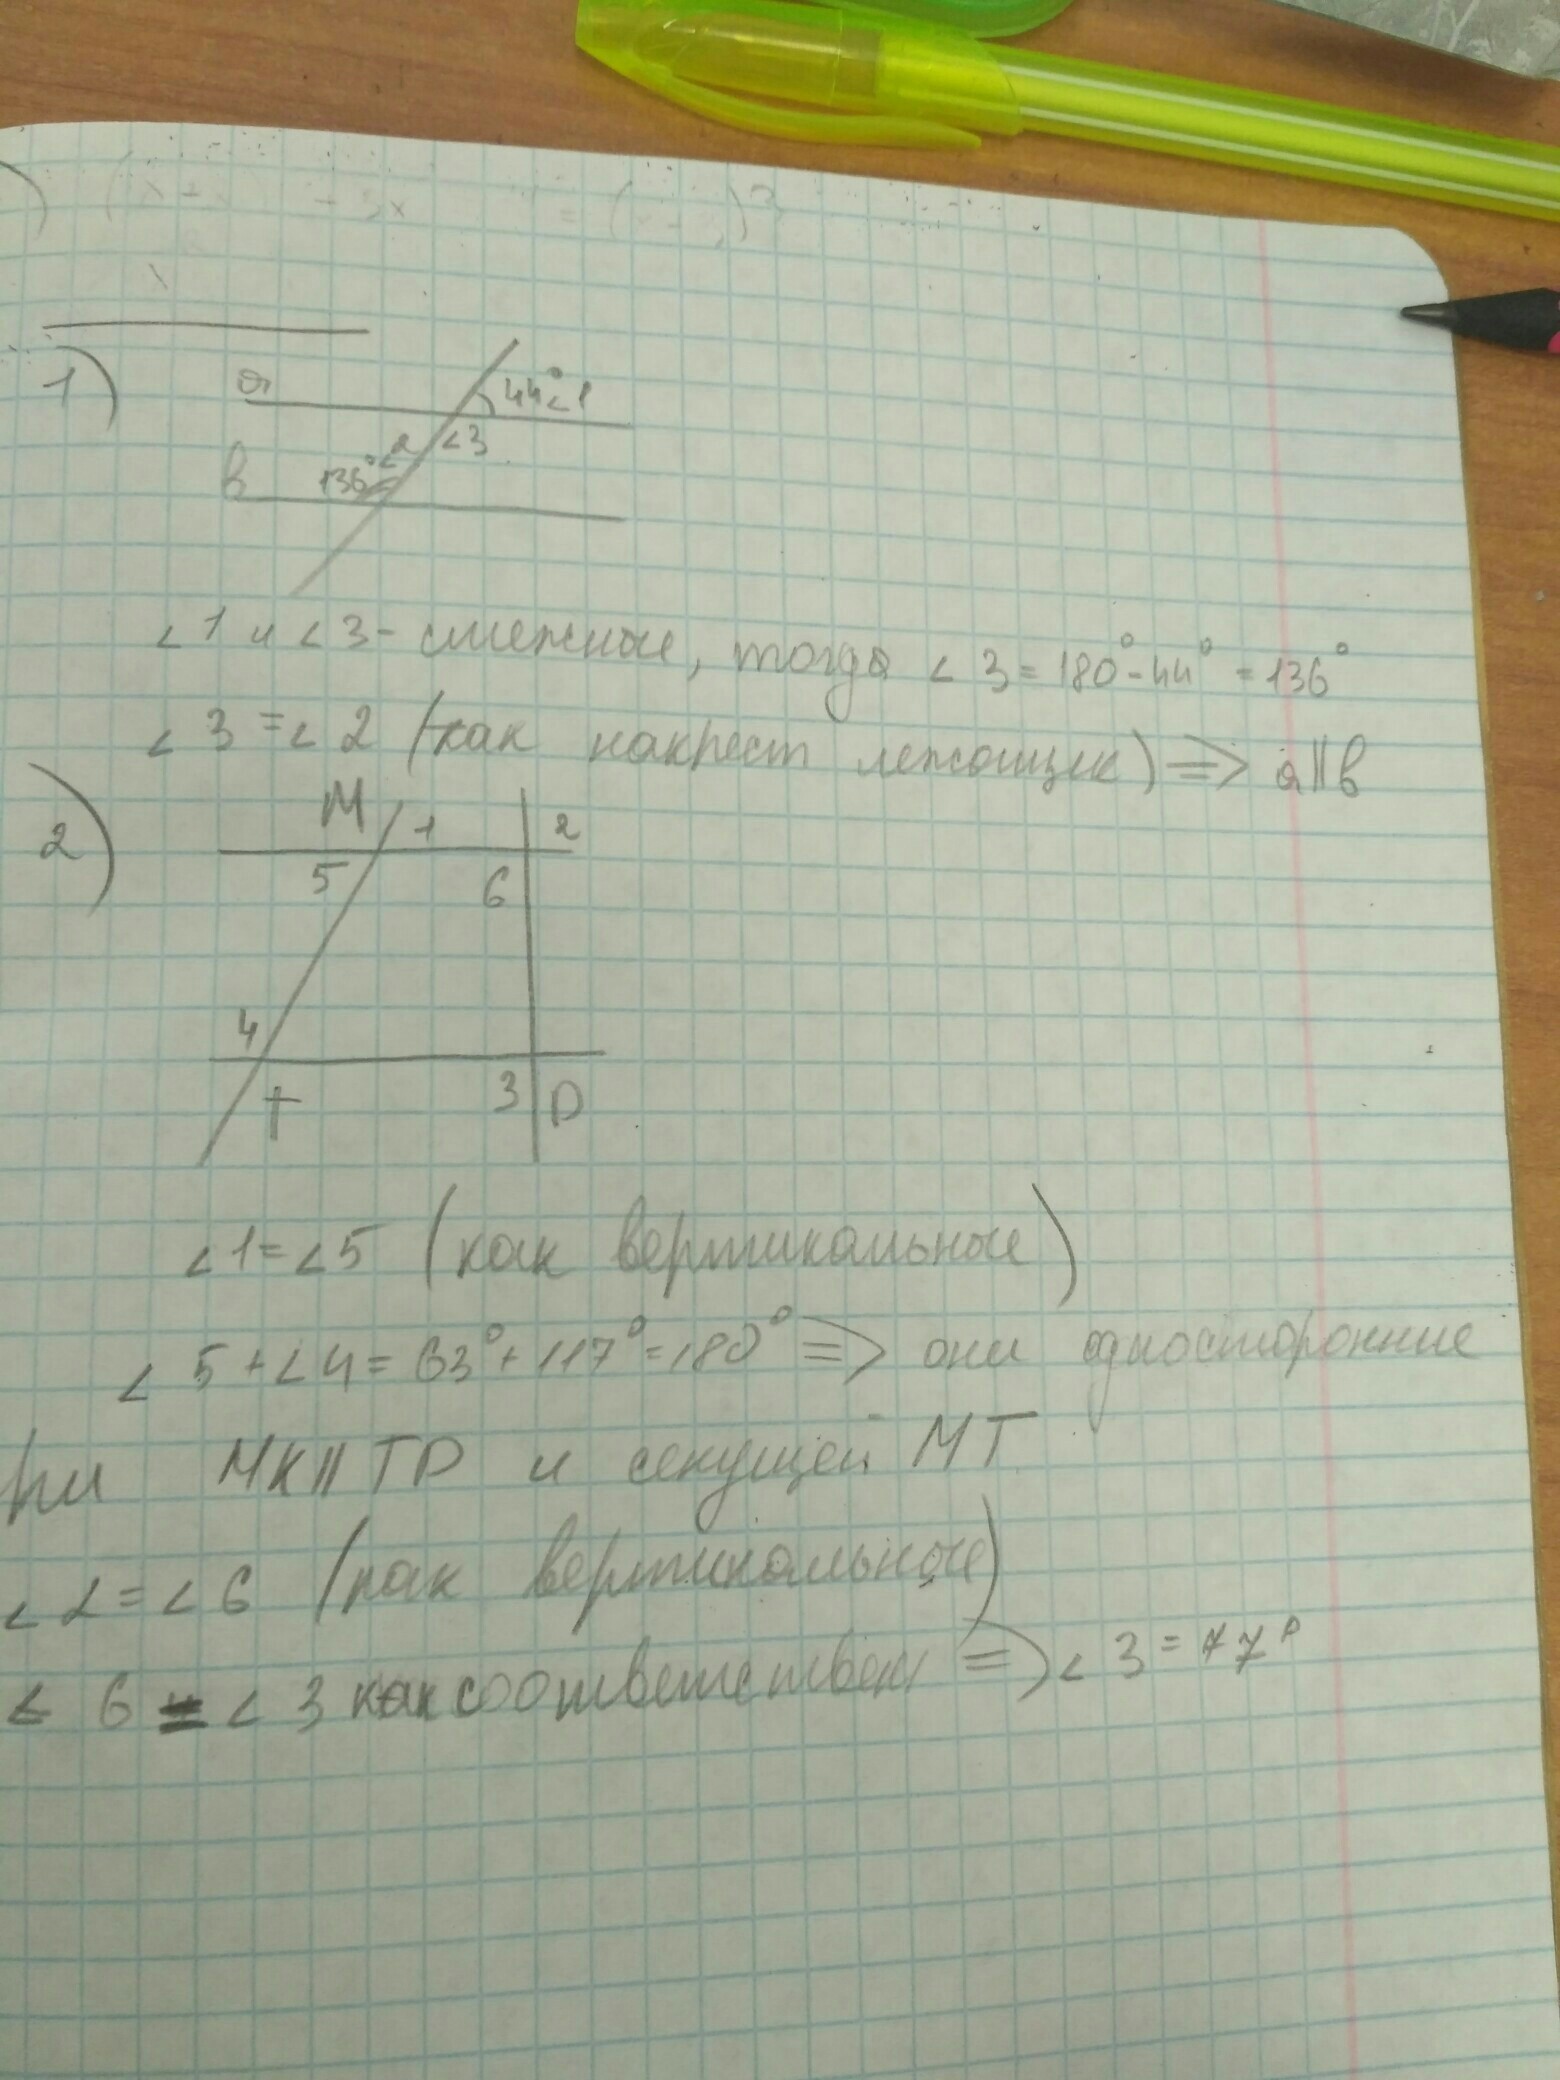 1)
a
44° ∠1
∠3
b
136° ∠2
∠1 и ∠3 - смежные, тогда ∠3 = 180° - 44° = 136°
∠3 = ∠2 (как накрест лежащие) => a || b
2)
M 1 2
5 6
4
T 3 D
∠1 = ∠5 (как вертикальные)
∠5 + ∠4 = 63° + 117° = 180° => они односторонние
при MK || TD и секущей MT
∠2 = ∠6 (как вертикальные)
∠6 = ∠3 как соответствен => ∠3 = 77°